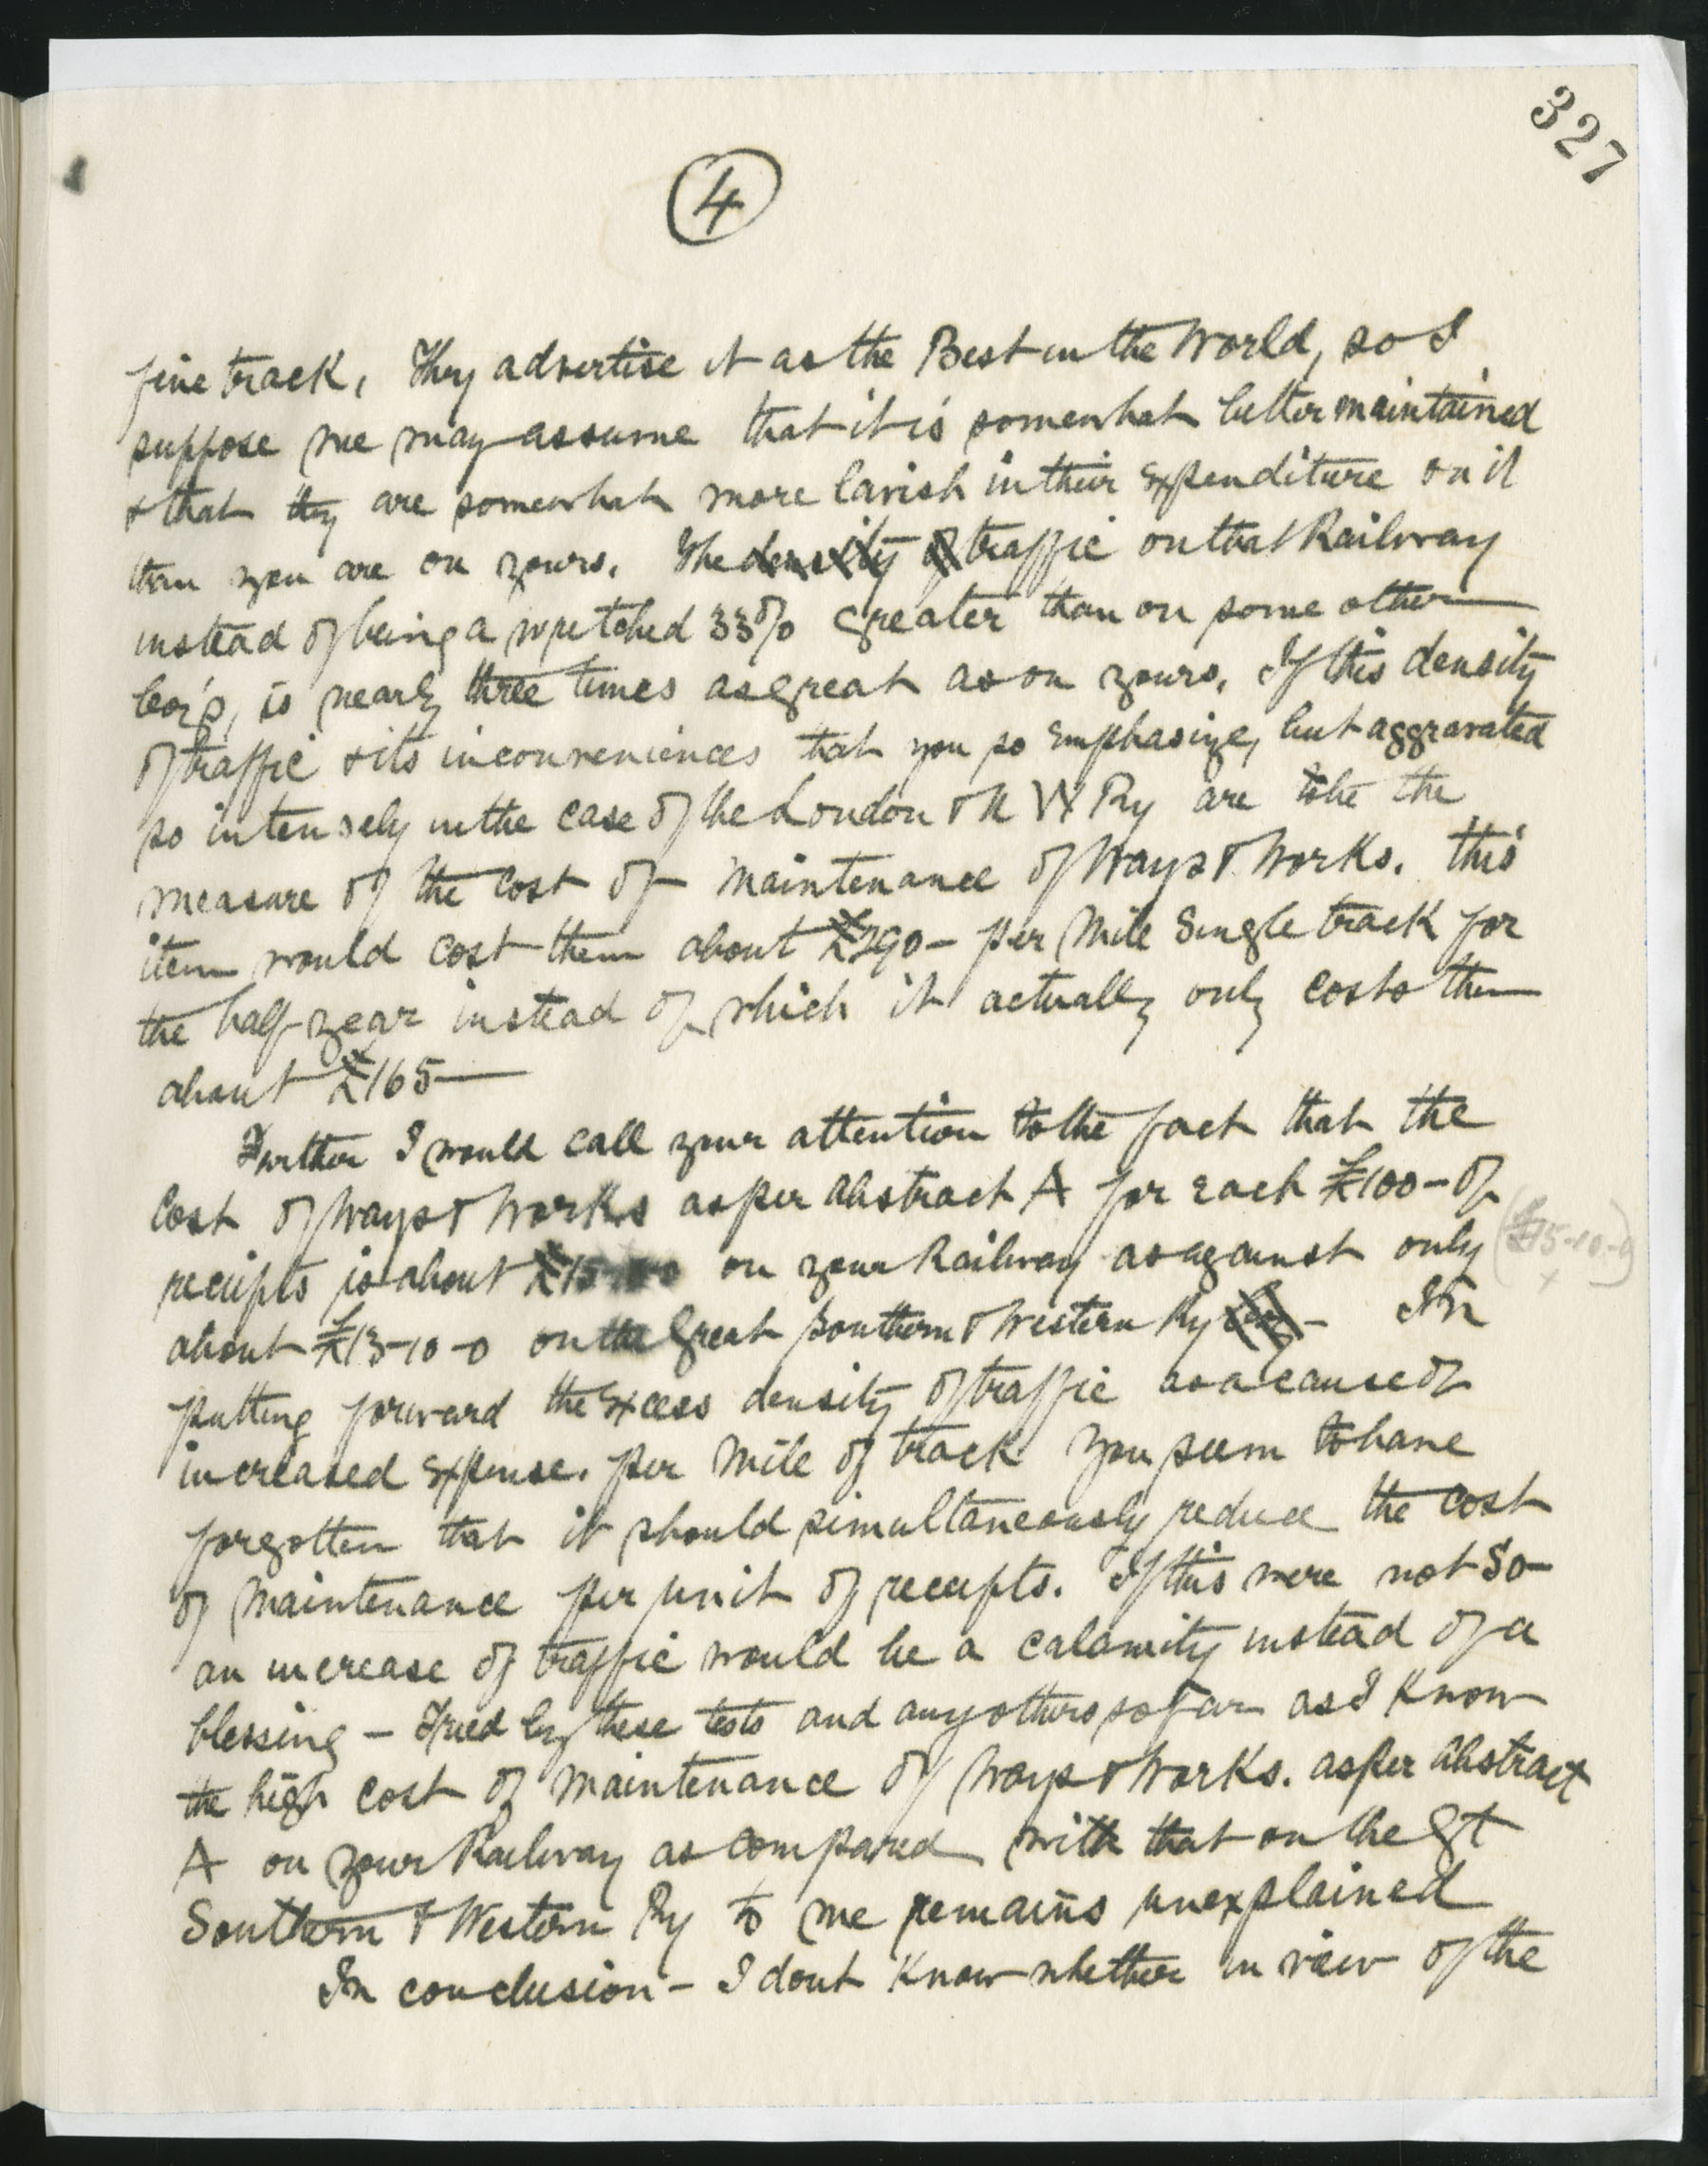 327
4
fine track, They advertise it as the Best in the World, so I
suppose we may assume that it is somewhat better maintained
& that they are somewhat more lavish in their expenditure on it
than you are on yours. The density of traffic on that Railway
instead of being a wretched 33% greater than on some other
Coy's, is nearly three times as great as on yours. If this density
of traffic & its inconveniences that you so emphasize, but aggravated
so intensely in the case of the London & N W Ry are to be the
measure of the cost of maintenance of Ways & Works. this
item would cost them about £290- per mile Single track for
the half year instead of which it actually only costs them
about £165-
Further I would call your attention to the fact that the
Cost of Ways & Works as per Abstract A for each £100- of
receipts is about £15 on your Railway as against only (£15-10-0)
about £13-10-0 on the Great Southern & Western Ry Coy - In
putting forward the excess density of traffic as a cause of
increased expense. per mile of track you seem to have
forgotten that it should simultaneously reduce the cost
of maintenance per unit of receipts. If this were not so-
an increase of traffic would be a calamity instead of a
blessing - Tried by these tests and any others so far as I know
the high cost of maintenance of Ways & Works. as per Abstract
A on your Railway as compared with that on the Gt
Southern & Western Ry to me remains unexplained
In conclusion - I dont know whether in view of the